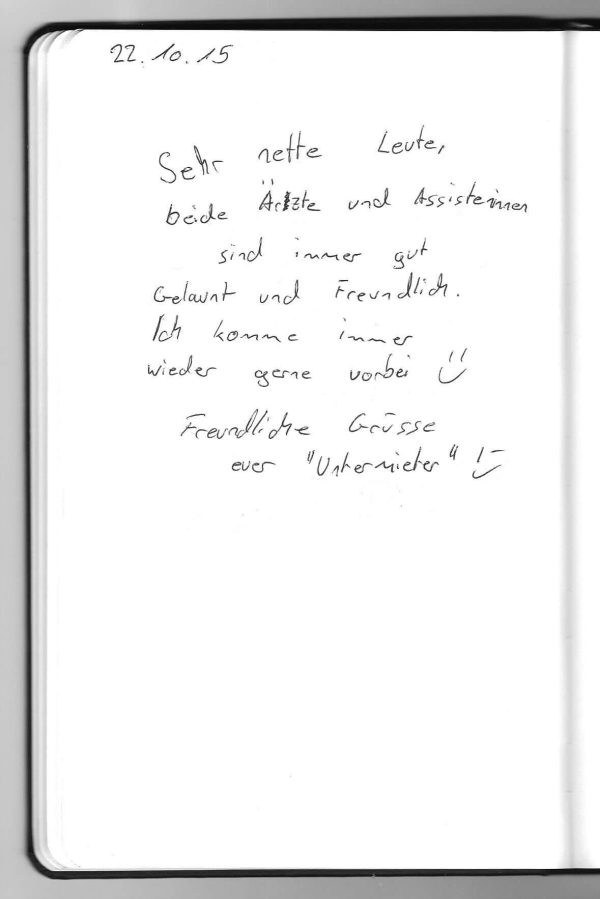 22.10.15
Sehr nette Leute,
beide Ärtzte und Assisterinnen
sind immer gut
Gelaunt und Freundlich.
Ich komme immer
wieder gerne vorbei
Freundliche Grüsse
euer "Untermieter"